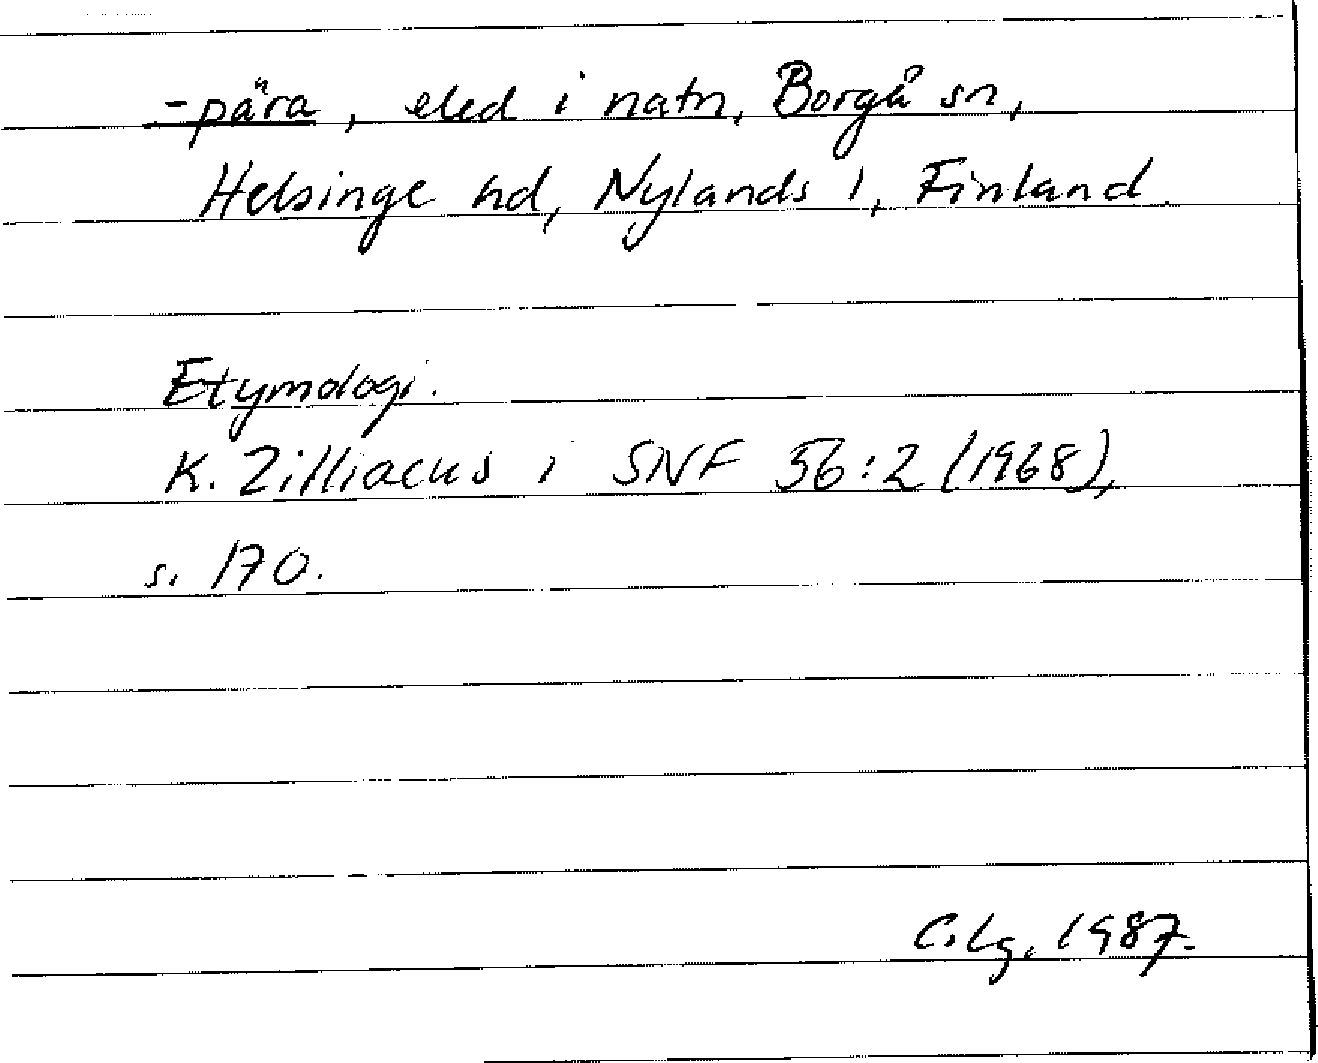 -pära, eled i natn, Borgå sn,
Helsinge hd, Nylands l, Finland.
Etymologi.
K. Zilliacus i SNF 56:2 (1968),
s. 170.
C. Lg. 1987.